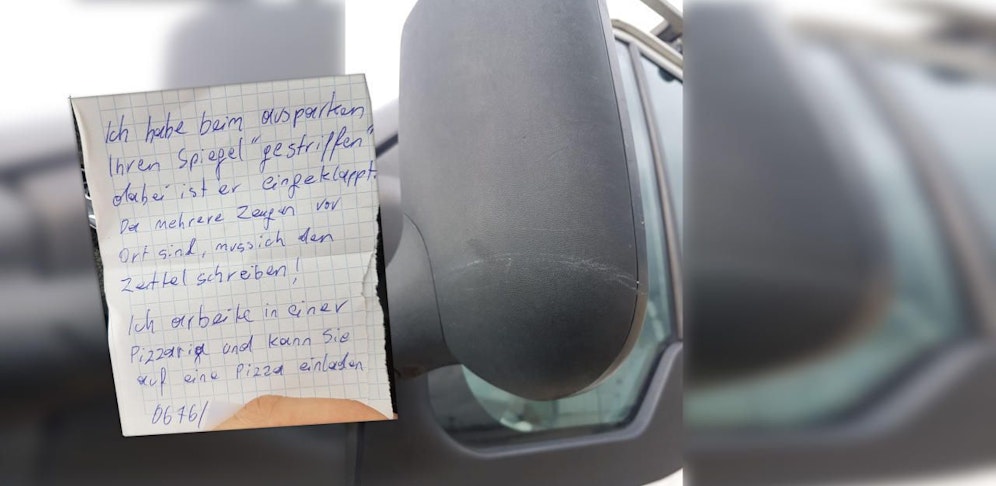 Ich habe beim ausparken
Ihren Spiegel "gestriffen"
dabei ist er eingeklappt.
Da mehrere Zeugen vor
Ort sind, muss ich den
Zettel schreiben!
Ich arbeite in einer
Pizzaria und kann Sie
auf eine Pizza einladen
0676/